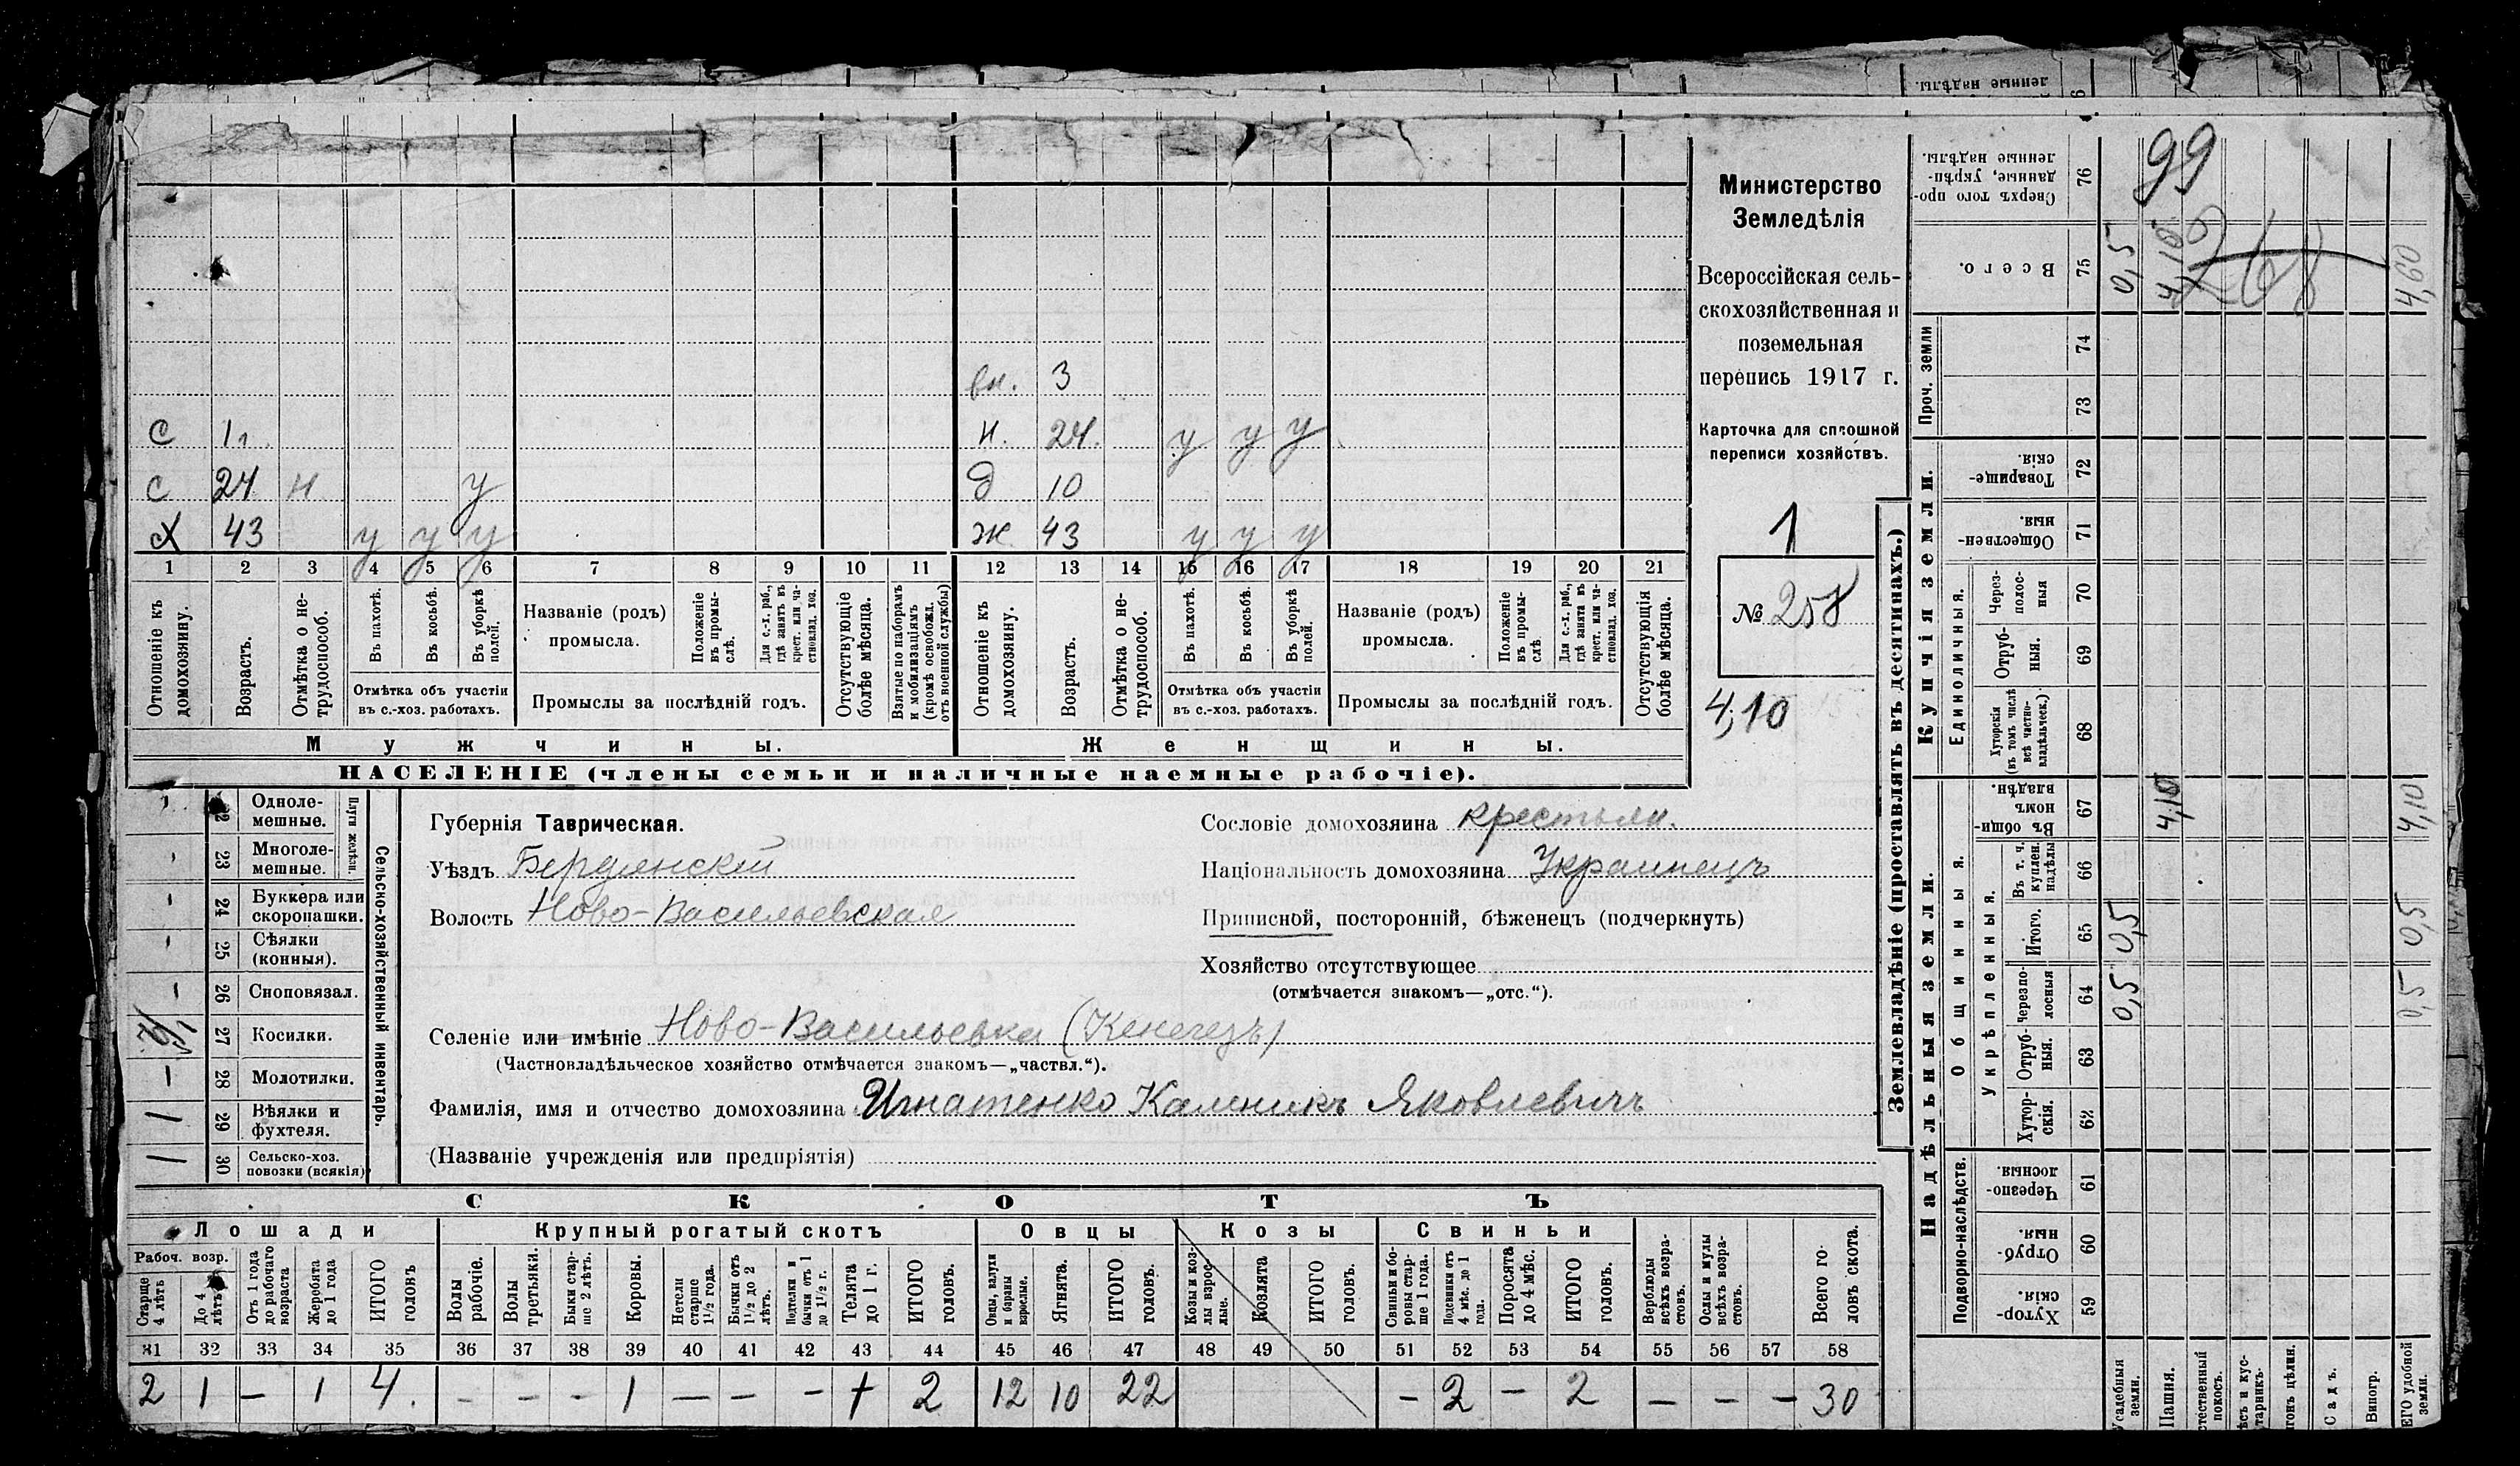 ленные надѣлы.
Министерство
Земледѣлія
Всероссійская сель-
скохозяйственная и
поземельная
перепись 1917 г.
Карточка для сплошной
переписи хозяйствъ.
1
№ 258
4,10
вн. 3
С 1 г. н. 24 у у у
С 24 н у д 10
Х 43 у у у ж 43 у у у
1 2 3 4 5 6 7 8 9 10 11 12 13 14 15 16 17 18 19 20 21
Отношеніе къ домохозяину.
Возрастъ.
Отмѣтка о не-трудоспособ.
Въ пахотѣ.
Въ косьбѣ.
Въ уборкѣ полей.
Отмѣтка объ участіи
въ с.-хоз. работахъ.
Названіе (родъ)
промысла.
Положеніе въ промы-слѣ.
Для с.-х. раб., гдѣ занятъ въ крест. или ча-стновлад. хоз.
Промыслы за послѣдній годъ.
Отсутствующіе болѣе мѣсяца.
Взятые по наборамъ и мобилизаціямъ (кромѣ освобожд. отъ военной службы)
Отношеніе къ домохозяину.
Возрастъ.
Отмѣтка о не-трудоспособ.
Въ пахотѣ.
Въ косьбѣ.
Въ уборкѣ полей.
Отмѣтка объ участіи
въ с.-хоз. работахъ.
Названіе (родъ)
промысла.
Положеніе въ промы-слѣ.
Для с.-х. раб., гдѣ занятъ въ крест. или ча-стновлад. хоз.
Промыслы за послѣдній годъ.
Отсутствующія болѣе мѣсяца.
Мужчины.
Женщины.
НАСЕЛЕНІЕ (члены семьи и наличные наемные рабочіе).
22 Одноле-мешные.
23 Многоле-мешные.
Плуги желѣзн.
- 24 Буккера или скоропашки.
- 25 Сѣялки (конныя).
- 26 Сноповязал.
27 Косилки.
- 28 Молотилки.
1 29 Вѣялки и фухтеля.
1 30 Сельско-хоз. повозки (всякія)
Сельско-хозяйственный инвентарь.
Губернія Таврическая.
Уѣздъ Бердянскій
Волость Ново-Васильевская
Сословіе домохозяина крестьян.
Національность домохозяина Украинецъ
Приписной, посторонній, бѣженецъ (подчеркнуть)
Хозяйство отсутствующее
(отмѣчается знакомъ—„отс.“).
Селеніе или имѣніе Ново-Васильевка (Кенегезъ)
(Частновладѣльческое хозяйство отмѣчается знакомъ—„частвл.“).
Фамилія, имя и отчество домохозяина Игнатенко Калникъ Яковлевичъ
(Названіе учрежденія или предпріятія)
СКОТЪ
Лошади Крупный рогатый скотъ Овцы Козы Свиньи
Рабоч. возр.
Старше 4 лѣтъ
До 4 лѣтъ
Отъ 1 года до рабочаго возраста
Жеребята до 1 года
ИТОГО головъ
Волы рабочіе.
Волы третьяки.
Быки стар-ше 2 лѣтъ.
Коровы.
Нетели старше 1½ года.
Бычки отъ 1½ до 2 лѣтъ.
Подтелки и бычки отъ 1 до 1½ г.
Телята до 1 г.
ИТОГО головъ.
Овцы, валухи и бараны взрослые.
Ягнята.
ИТОГО головъ.
Козы и коз-лы взрос-лые.
Козлята
ИТОГО головъ.
Свиньи и бо-ровы стар-ше 1 года.
Подсвинки отъ 4 мѣс. до 1 года.
Поросята до 4 мѣс.
ИТОГО головъ.
Верблюды всѣхъ возра-стовъ.
Ослы и мулы всѣхъ возра-стовъ.
Всего го-ловъ скота.
31 32 33 34 35 36 37 38 39 40 41 42 43 44 45 46 47 48 49 50 51 52 53 54 55 56 57 58
2 1 - 1 4. - - - 1 - - - 1 2 12 10 22 - 2 - 2 - - - 30
Землевладѣніе (проставлять въ десятинахъ.)
Купчія земли.
Надѣльныя земли.
Проч. земли
Единоличныя.
Общинныя.
Укрѣпленныя.
Подворно-наслѣдств.
Сверхъ того про-данные, укрѣп-ленные надѣлы. 76 99
Всего. 75 0,5 4,10 4,60
74
73
Товарище-скія. 72
Обществен-ныя. 71
Через-полос-ныя 70
Отруб-ныя. 69
Хуторскія (въ томъ числѣ всѣ частно-владѣльческ.) 68
Въ общин-номъ владѣн. 67 4,10 4,10
Въ т. ч. куплен. надѣлы 66
Итого. 65 0,5 0,5
Черезпо-лосныя 64 0,5 0,5
Отруб-ныя. 63
Хутор-скія. 62
Черезпо-лосныя. 61
Отруб-ныя. 60
Хутор-скія. 59
Усадебныя земли.
Пашня.
Садъ.
Виногр.
удобной земли.